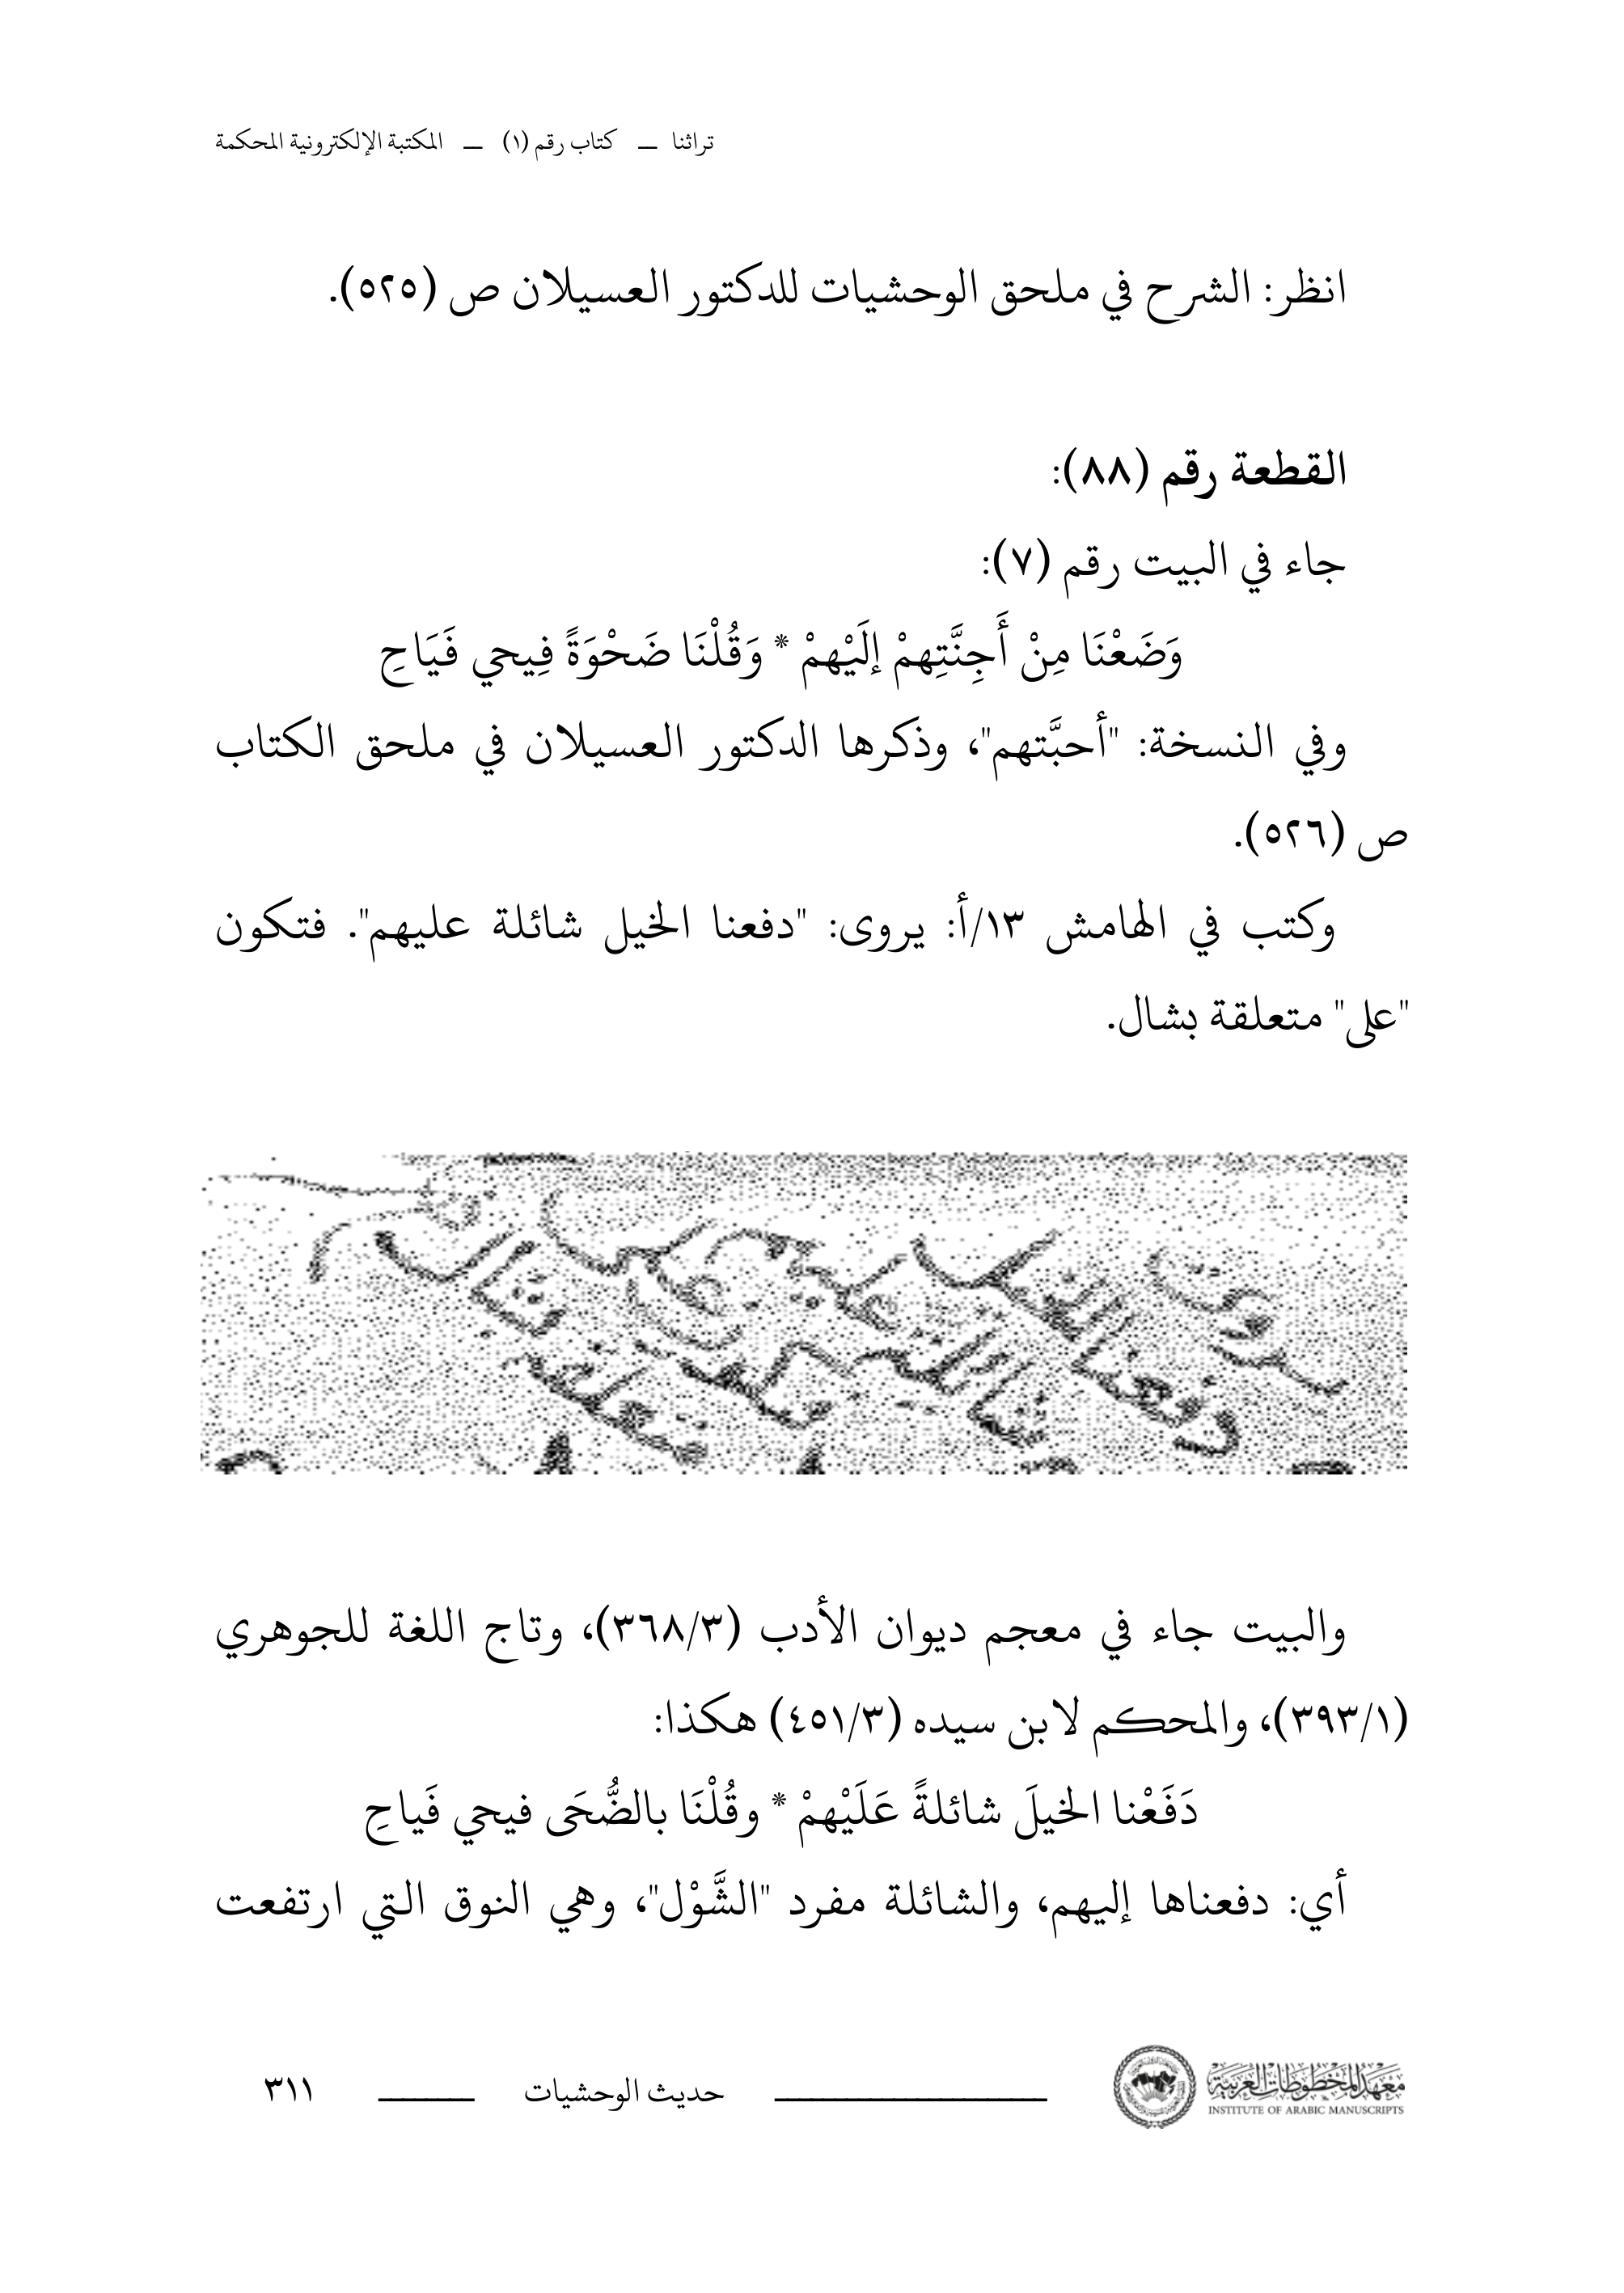 تراثنا — كتاب رقم (١) — المكتبة الإلكترونية المحكمة
انظر: الشرح في ملحق الوحشيات للدكتور العسيلان ص (٥٢٥).
القطعة رقم (٨٨):
جاء في البيت رقم (٧):
وَضَعْنَا مِنْ أَجِنَّتِهِمْ إلَيْهِمْ * وَقُلْنَا ضَحْوَةً فِيحي فَيَاحِ
وفي النسخة: "أحبَّتهم"، وذكرها الدكتور العسيلان في ملحق الكتاب
ص (٥٢٦).
وكتب في الهامش ١٣/أ: يروى: "دفعنا الخيل شائلة عليهم". فتكون
"على" متعلقة بشال.
والبيت جاء في معجم ديوان الأدب (٣٦٨/٣)، وتاج اللغة للجوهري
(٣٩٣/١)، والمحكم لابن سيده (٤٥١/٣) هكذا:
دَفَعْنا الخيلَ شائلةً عَلَيْهِمْ * وقُلْنَا بالضُّحَى فيحي فَياحِ
أي: دفعناها إليهم، والشائلة مفرد "الشَّوْل"، وهي النوق التي ارتفعت
معهد المخطوطات العربية
INSTITUTE OF ARABIC MANUSCRIPTS
حديث الوحشيات
٣١١